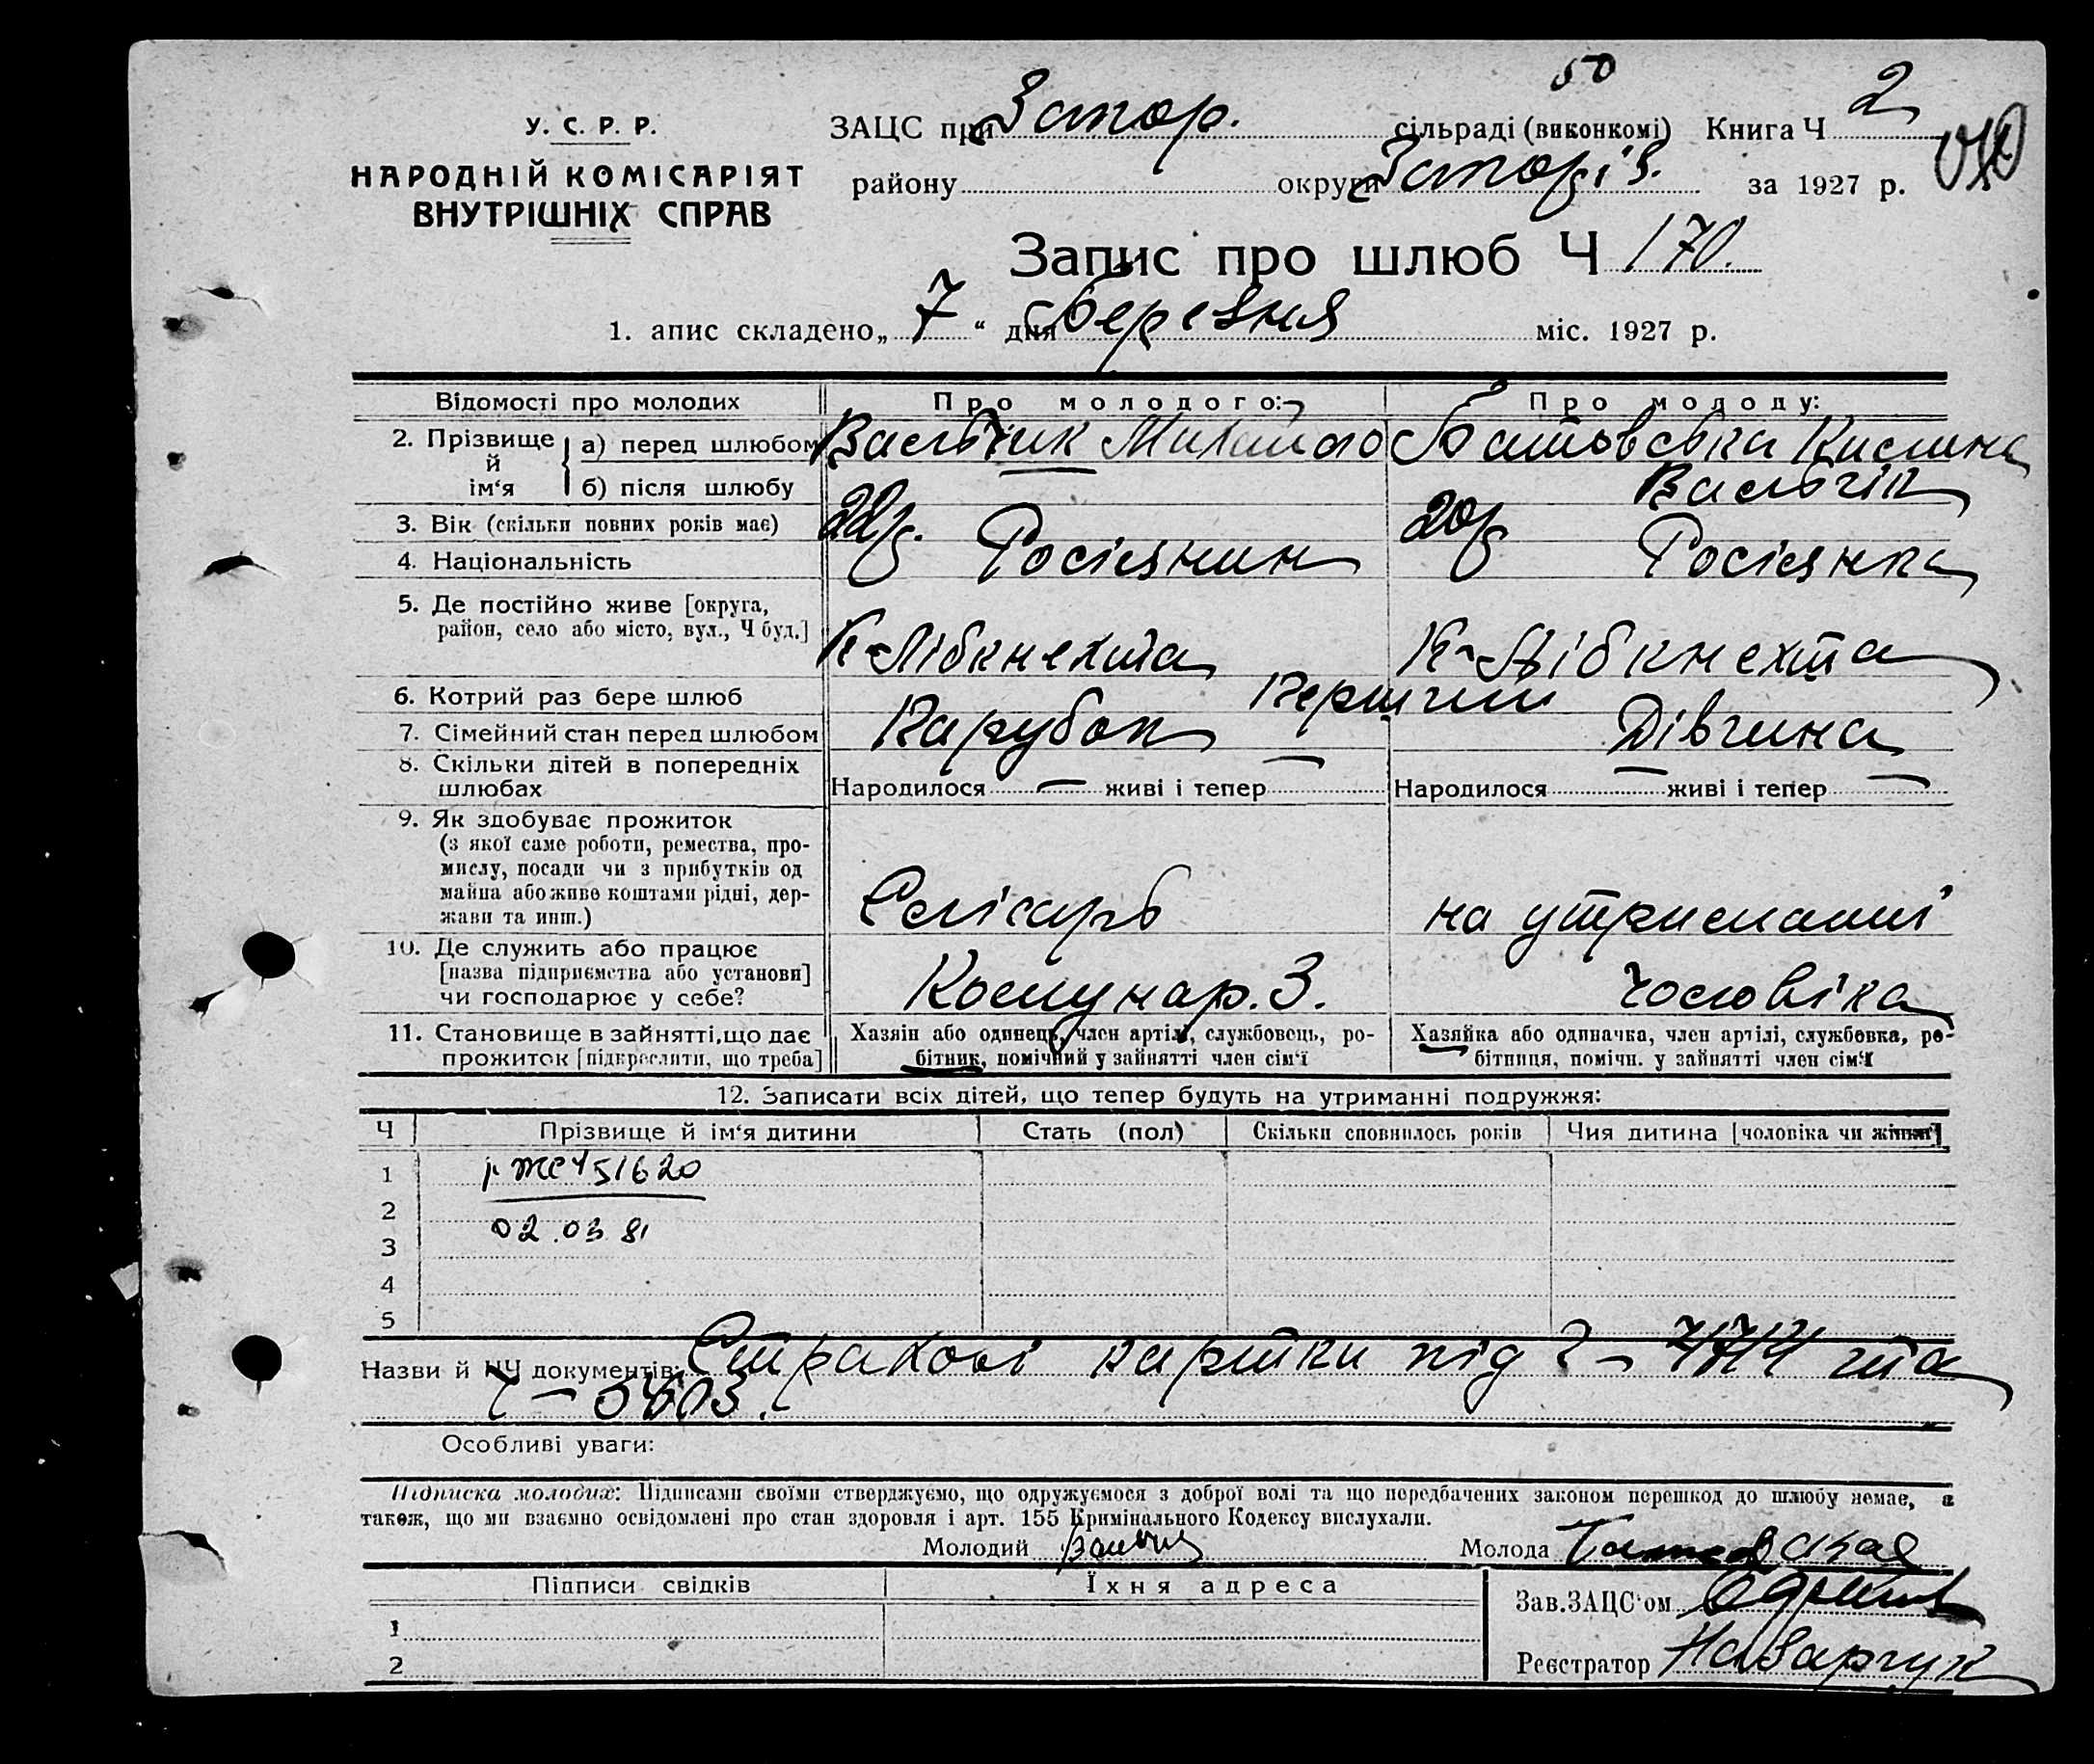 50
У. С. Р. Р.
НАРОДНІЙ КОМІСАРІЯТ
ВНУТРІШНІХ СПРАВ
ЗАЦС при Запор. сільраді (виконкомі) Книга Ч 2
району округи Запоріз. за 1927 р.
Запис про шлюб Ч 170.
1. апис складено „ 7 “ дня березня міс. 1927 р.
Відомості про молодих
Про молодого:
Про молоду:
2. Прізвище й ім‘я
а) перед шлюбом
Васильчик Михайло
Кисмина
б) після шлюбу
Васильчік
3. Вік (скільки повних років має)
22р.
20р
4. Національність
Росіянин
Росіянка
5. Де постійно живе [округа,
район, село або місто, вул., Ч буд.]
К-Лібкнехта
К-Лібкнехта
6. Котрий раз бере шлюб
Перший
7. Сімейний стан перед шлюбом
Парубок
Дівчина
8. Скільки дітей в попередніх
шлюбах
Народилося — живі і тепер —
Народилося — живі і тепер —
9. Як здобуває прожиток
(з якої саме роботи, ремества, про-
мислу, посади чи з прибутків од
майна або живе коштами рідні, дер-
жави та инш.)
Слісарь
на утриманні
10. Де служить або працює
[назва підприємства або установи]
чи господарює у себе?
Комунар. З.
чоловіка
11. Становище в зайнятті, що дає
прожиток [підкреслити, що треба]
Хазяін або одинець, член артілі, службовець, ро-
бітник, помічний у зайнятті член сім‘ї
Хазяйка або одиначка, член артілі, службовка, ро-
бітниця, помічн. у зайнятті член сім‘ї
12. Записати всіх дітей, що тепер будуть на утриманні подружжя:
Ч
Прізвище й ім‘я дитини
Стать (пол)
Скільки сповнилось років
Чия дитина [чоловіка чи жінки]
1
451620
2
02.03 81
3
4
5
Назви й ЧЧ документів: Страхові картки під Ч – та
Ч –
Особливі уваги:
Підписка молодих: Підписами своїми стверджуємо, що одружуємося з доброї волі та що передбачених законом перешкод до шлюбу немає, а
також, що ми взаємно освідомлені про стан здоровля і арт. 155 Кримінального Кодексу вислухали.
Молодий
Молода
Підписи свідків
Їхня адреса
Зав.ЗАЦС‘ом
1
2
Реєстратор Назарчук